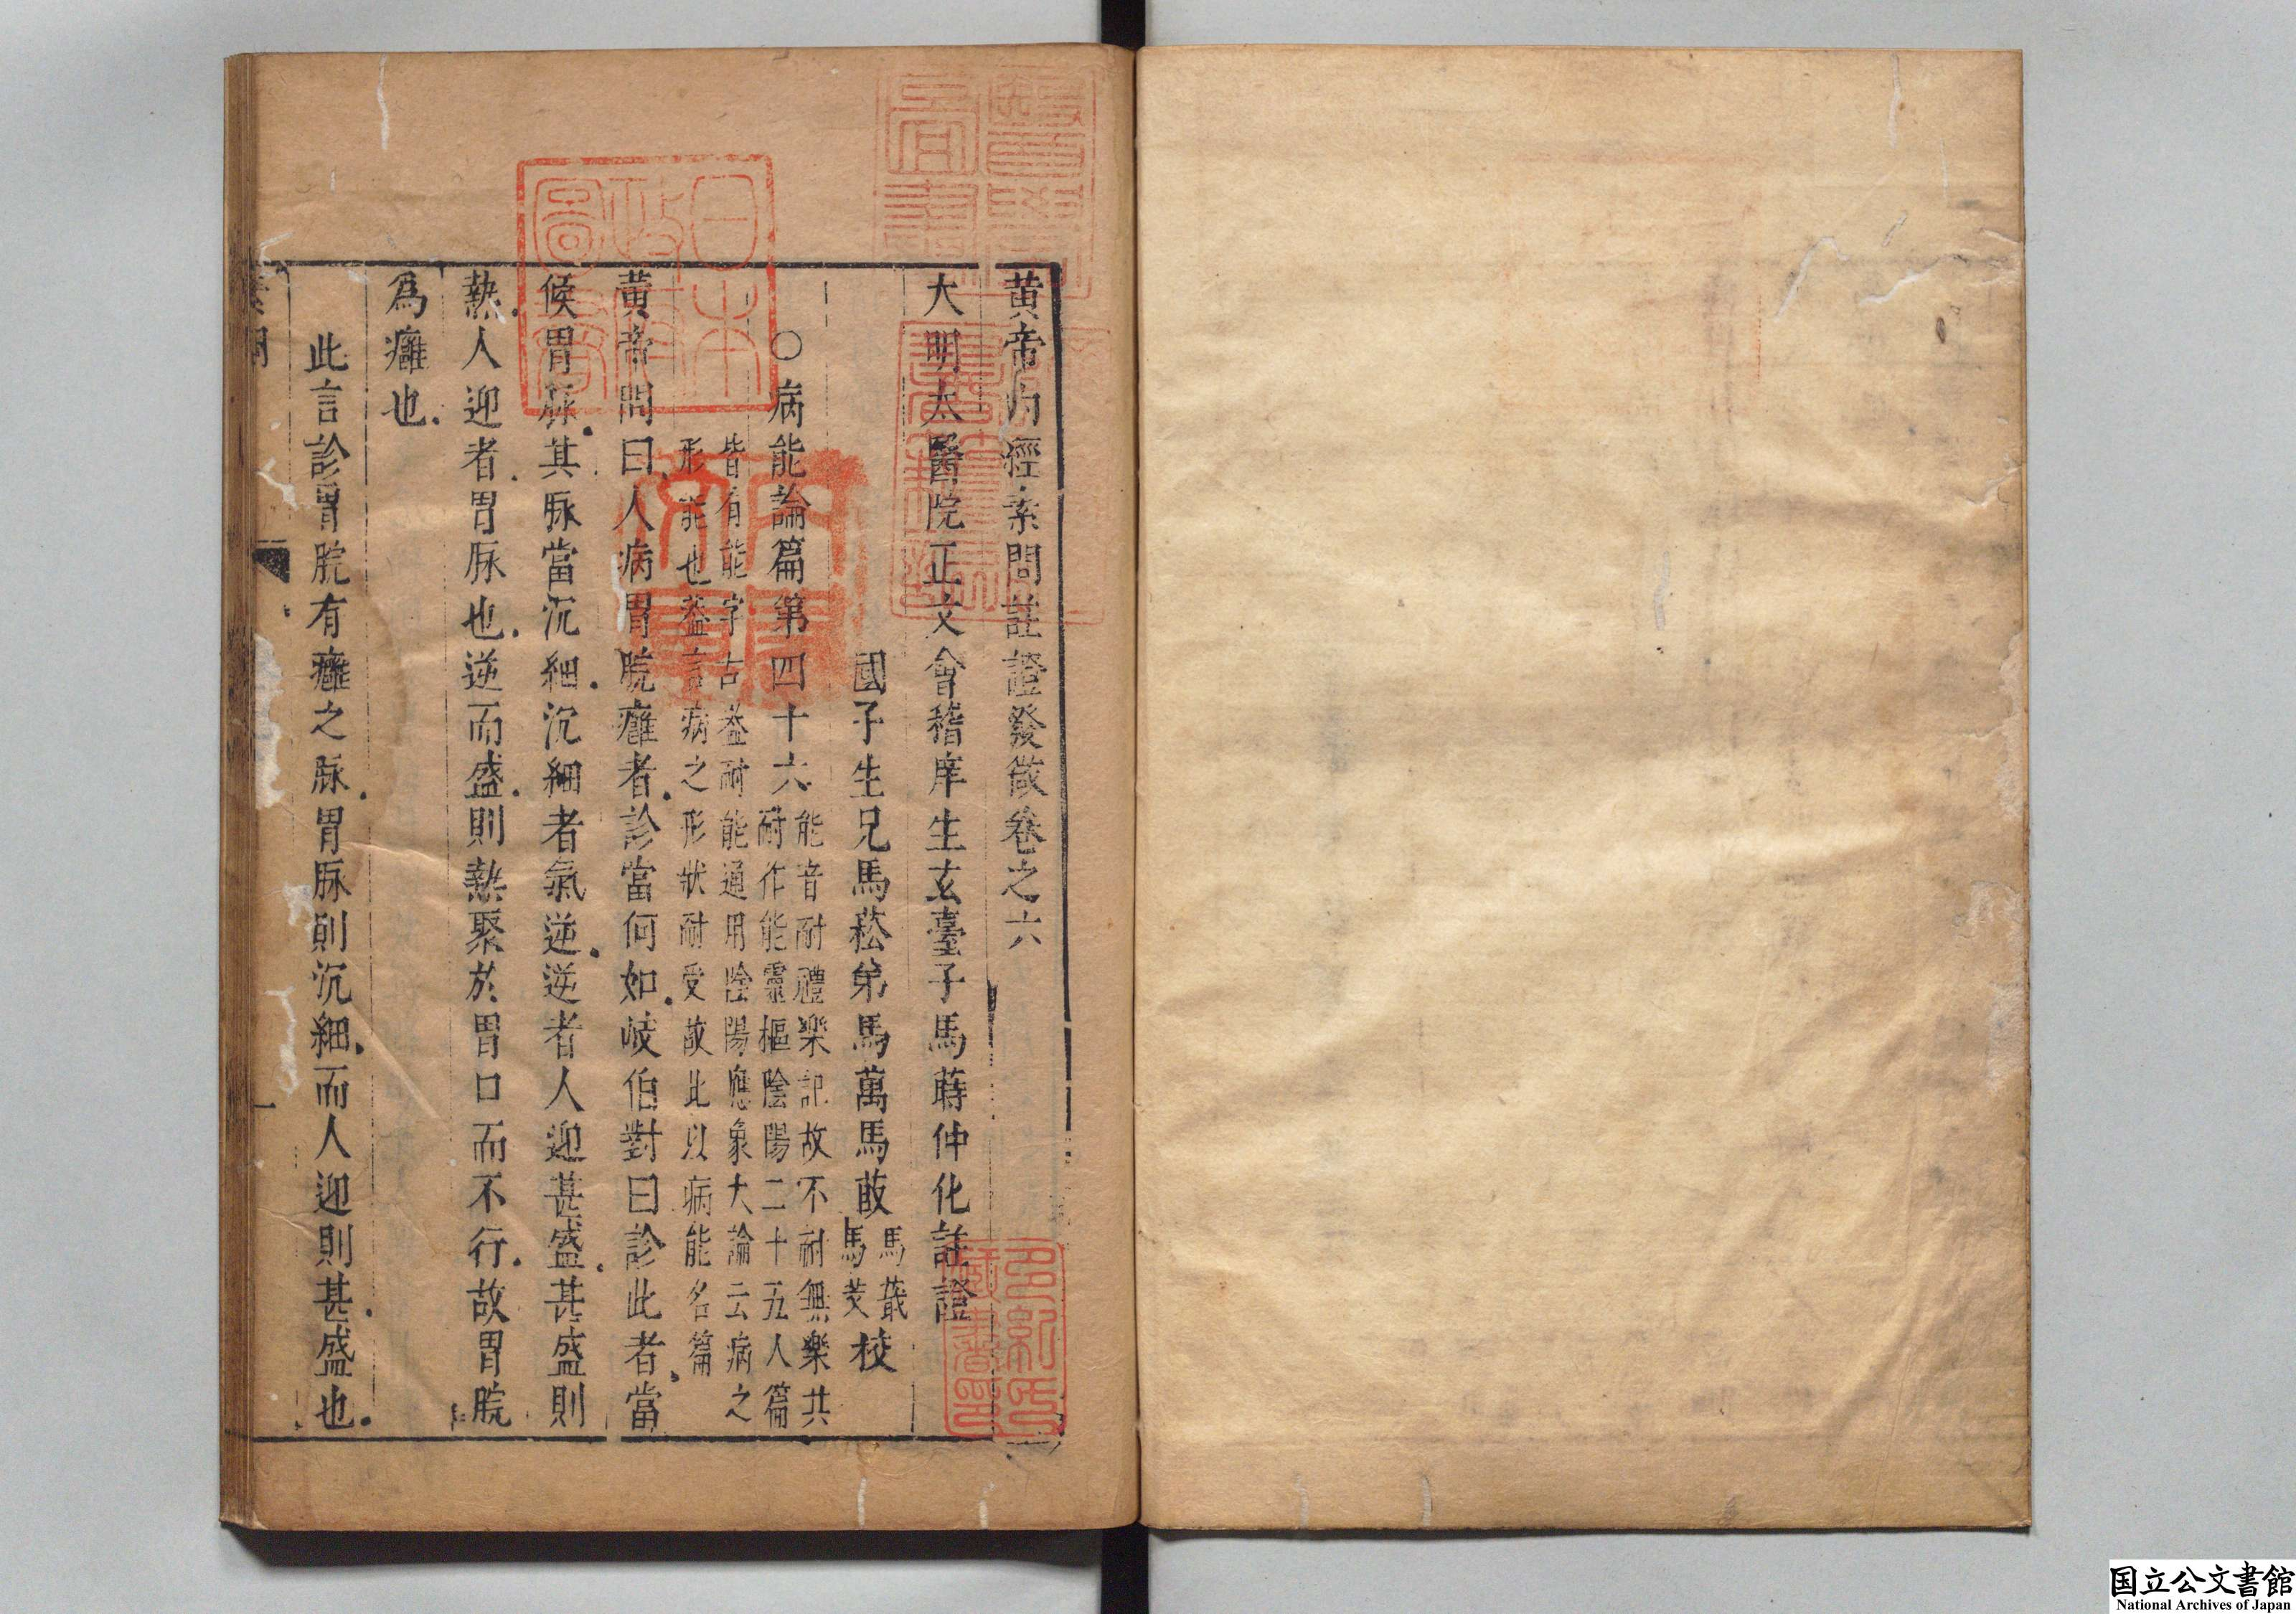 黃帝內經素問註證發微卷之六
大明太醫院正文會稽庠生玄臺子馬蒔仲化註證
國子生兄馬菘弟馬萬馬蔽馬蕺馬芰校
○病能論篇第四十六
能音耐禮樂記故不耐無樂共
耐作能靈樞陰陽二十五人篇
皆有能字古葢耐能通用陰陽應象大論云病之
形能也葢言病之形狀耐受故此以病能名篇
黃帝問曰人病胃脘癰者診當何如岐伯對曰診此者當
候胃脉其脉當沉細沉細者氣逆逆者人迎甚盛甚盛則
熱人迎者胃脉也逆而盛則熱聚於胃口而不行故胃脘
爲癰也
此言診胃脘有癰之脉胃脉則沉細而人迎則甚盛也
一
日本政府圖書
国立公文書館
National Archives of Japan